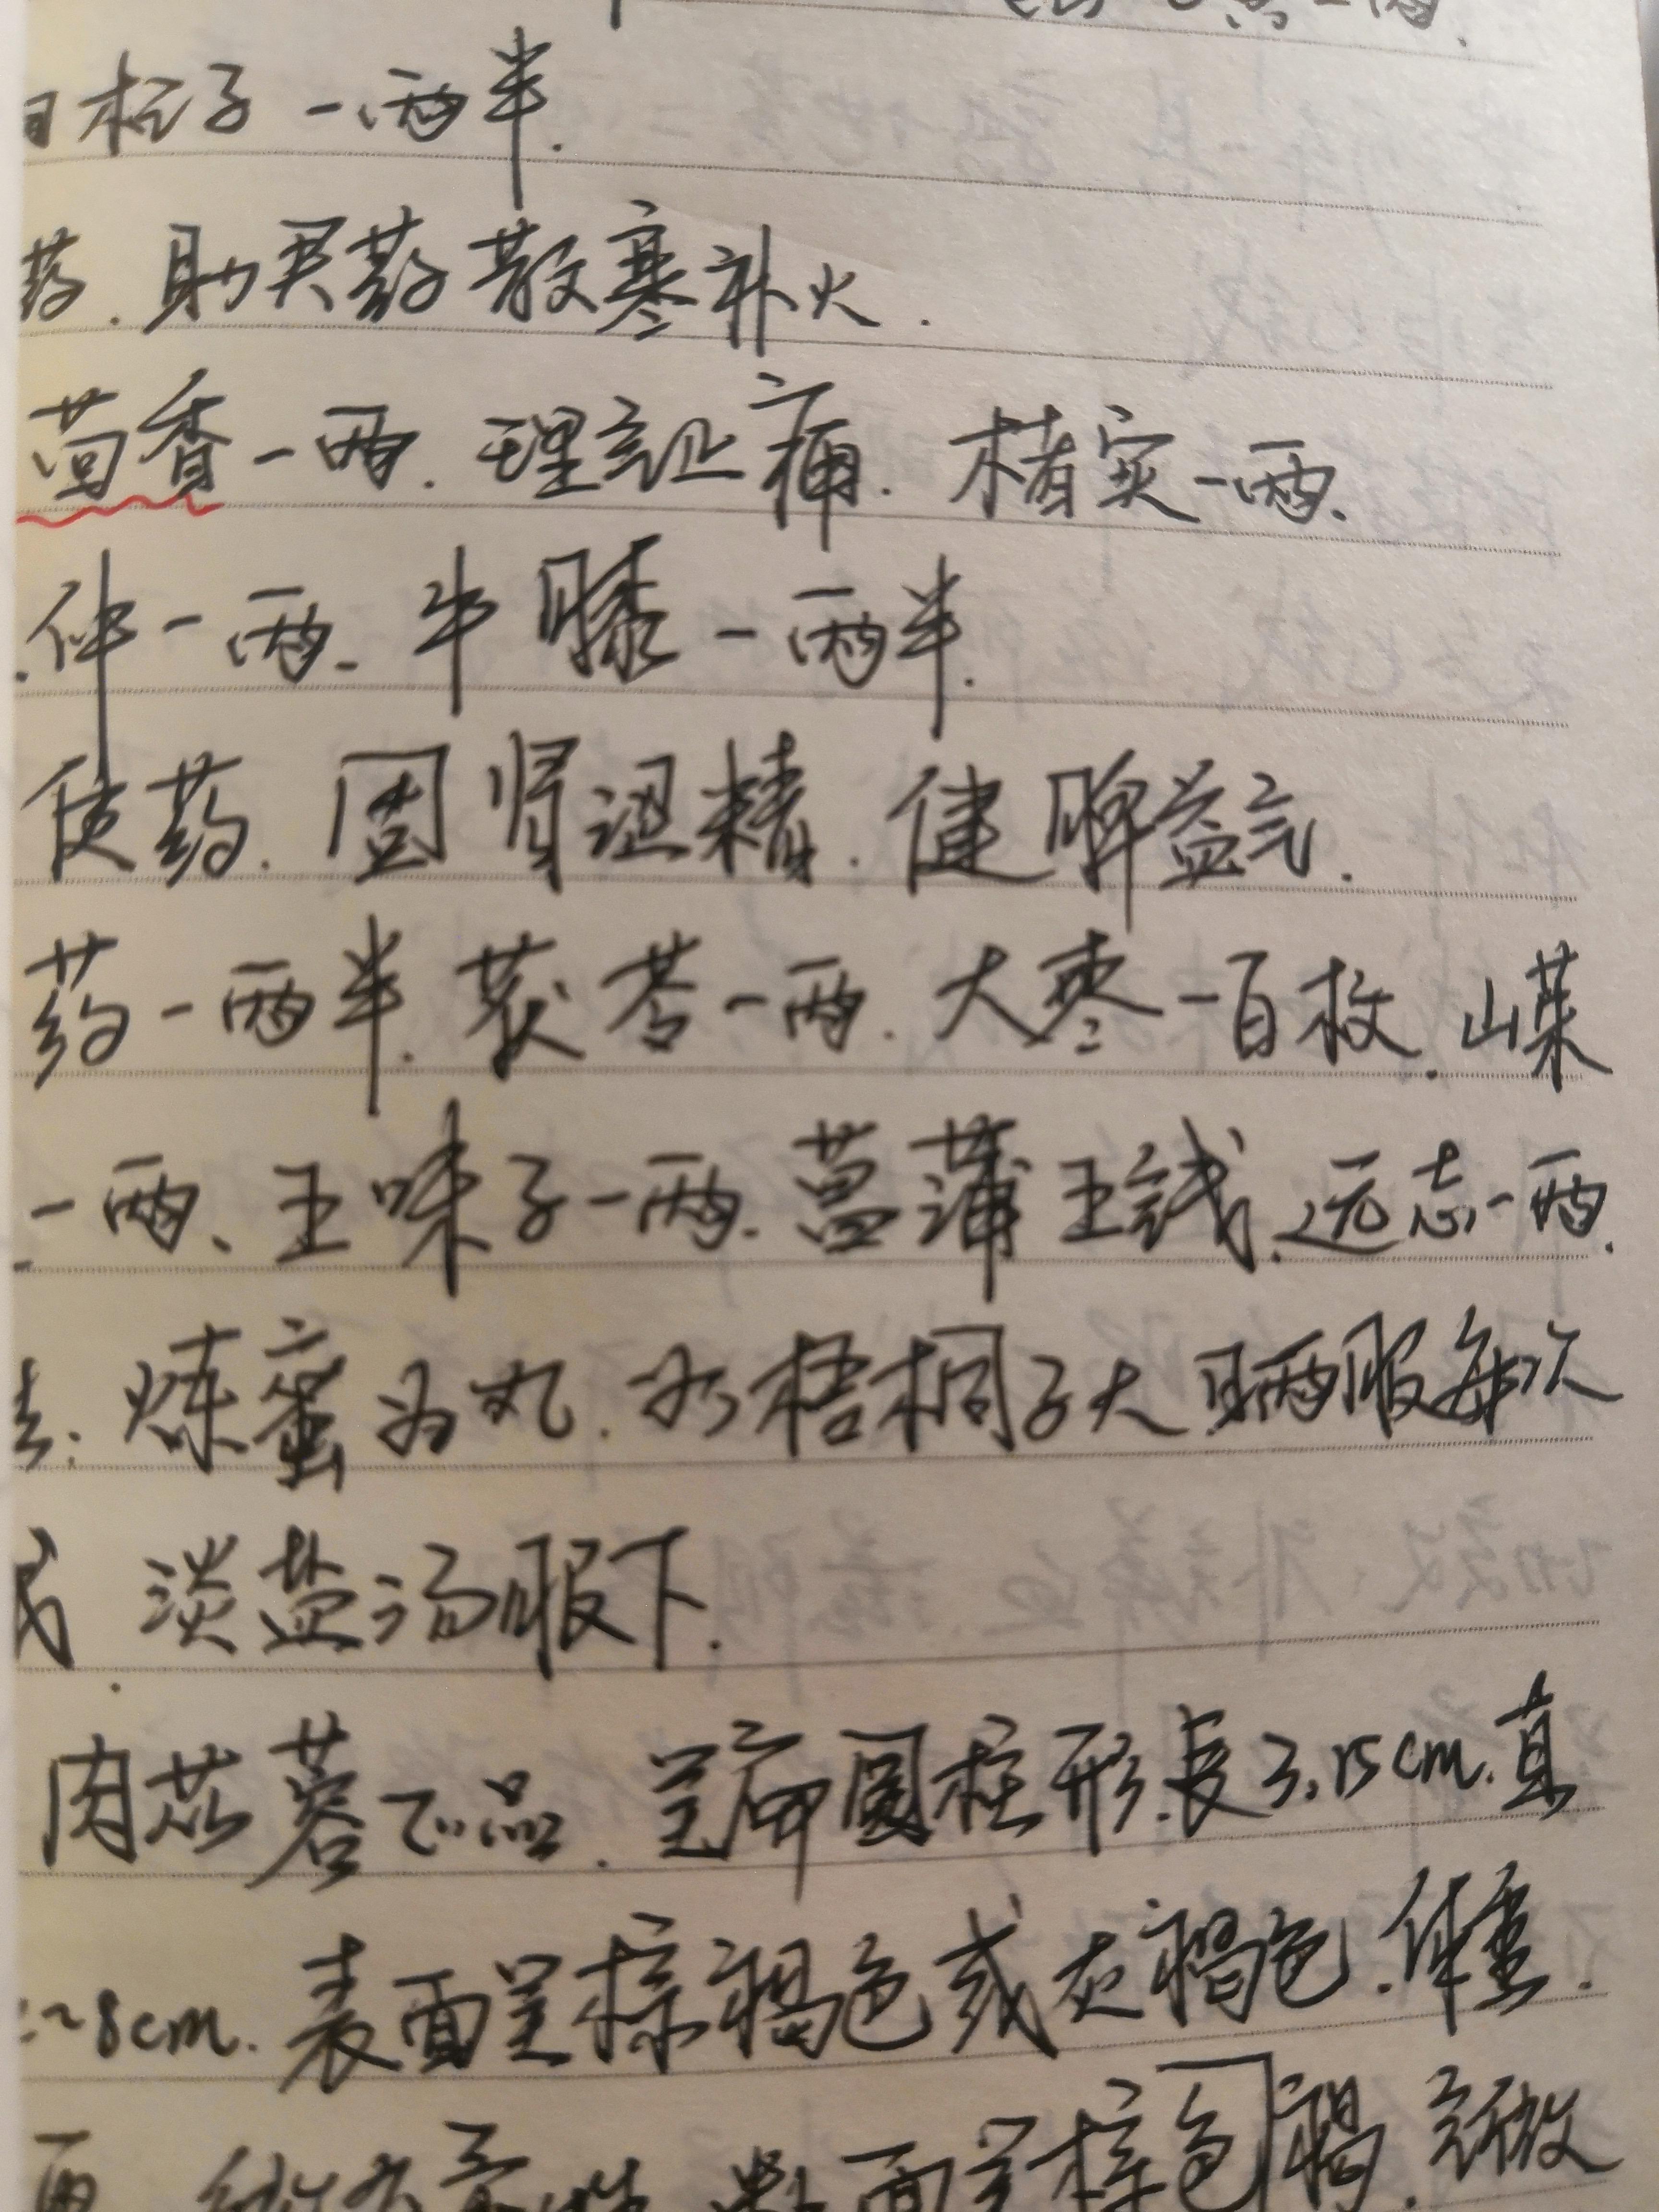 枸杞子一两半.
药.助君药散寒补火.
茴香一两.理气止痛.楮实一两.
仲一两.牛膝一两半.
使药.固肾涩精.健脾益气.
药一两半.茯苓一两.大枣一百枚.山茱
一两、五味子一两.菖蒲五钱.远志一两.
炼蜜为丸.如梧桐子大.服每次
淡盐汤服下.
肉苁蓉下品.呈扁圆柱形.長3.15cm.直
~8cm.表面呈棕褐色或灰褐色.体重.
面呈棕色褐.气微